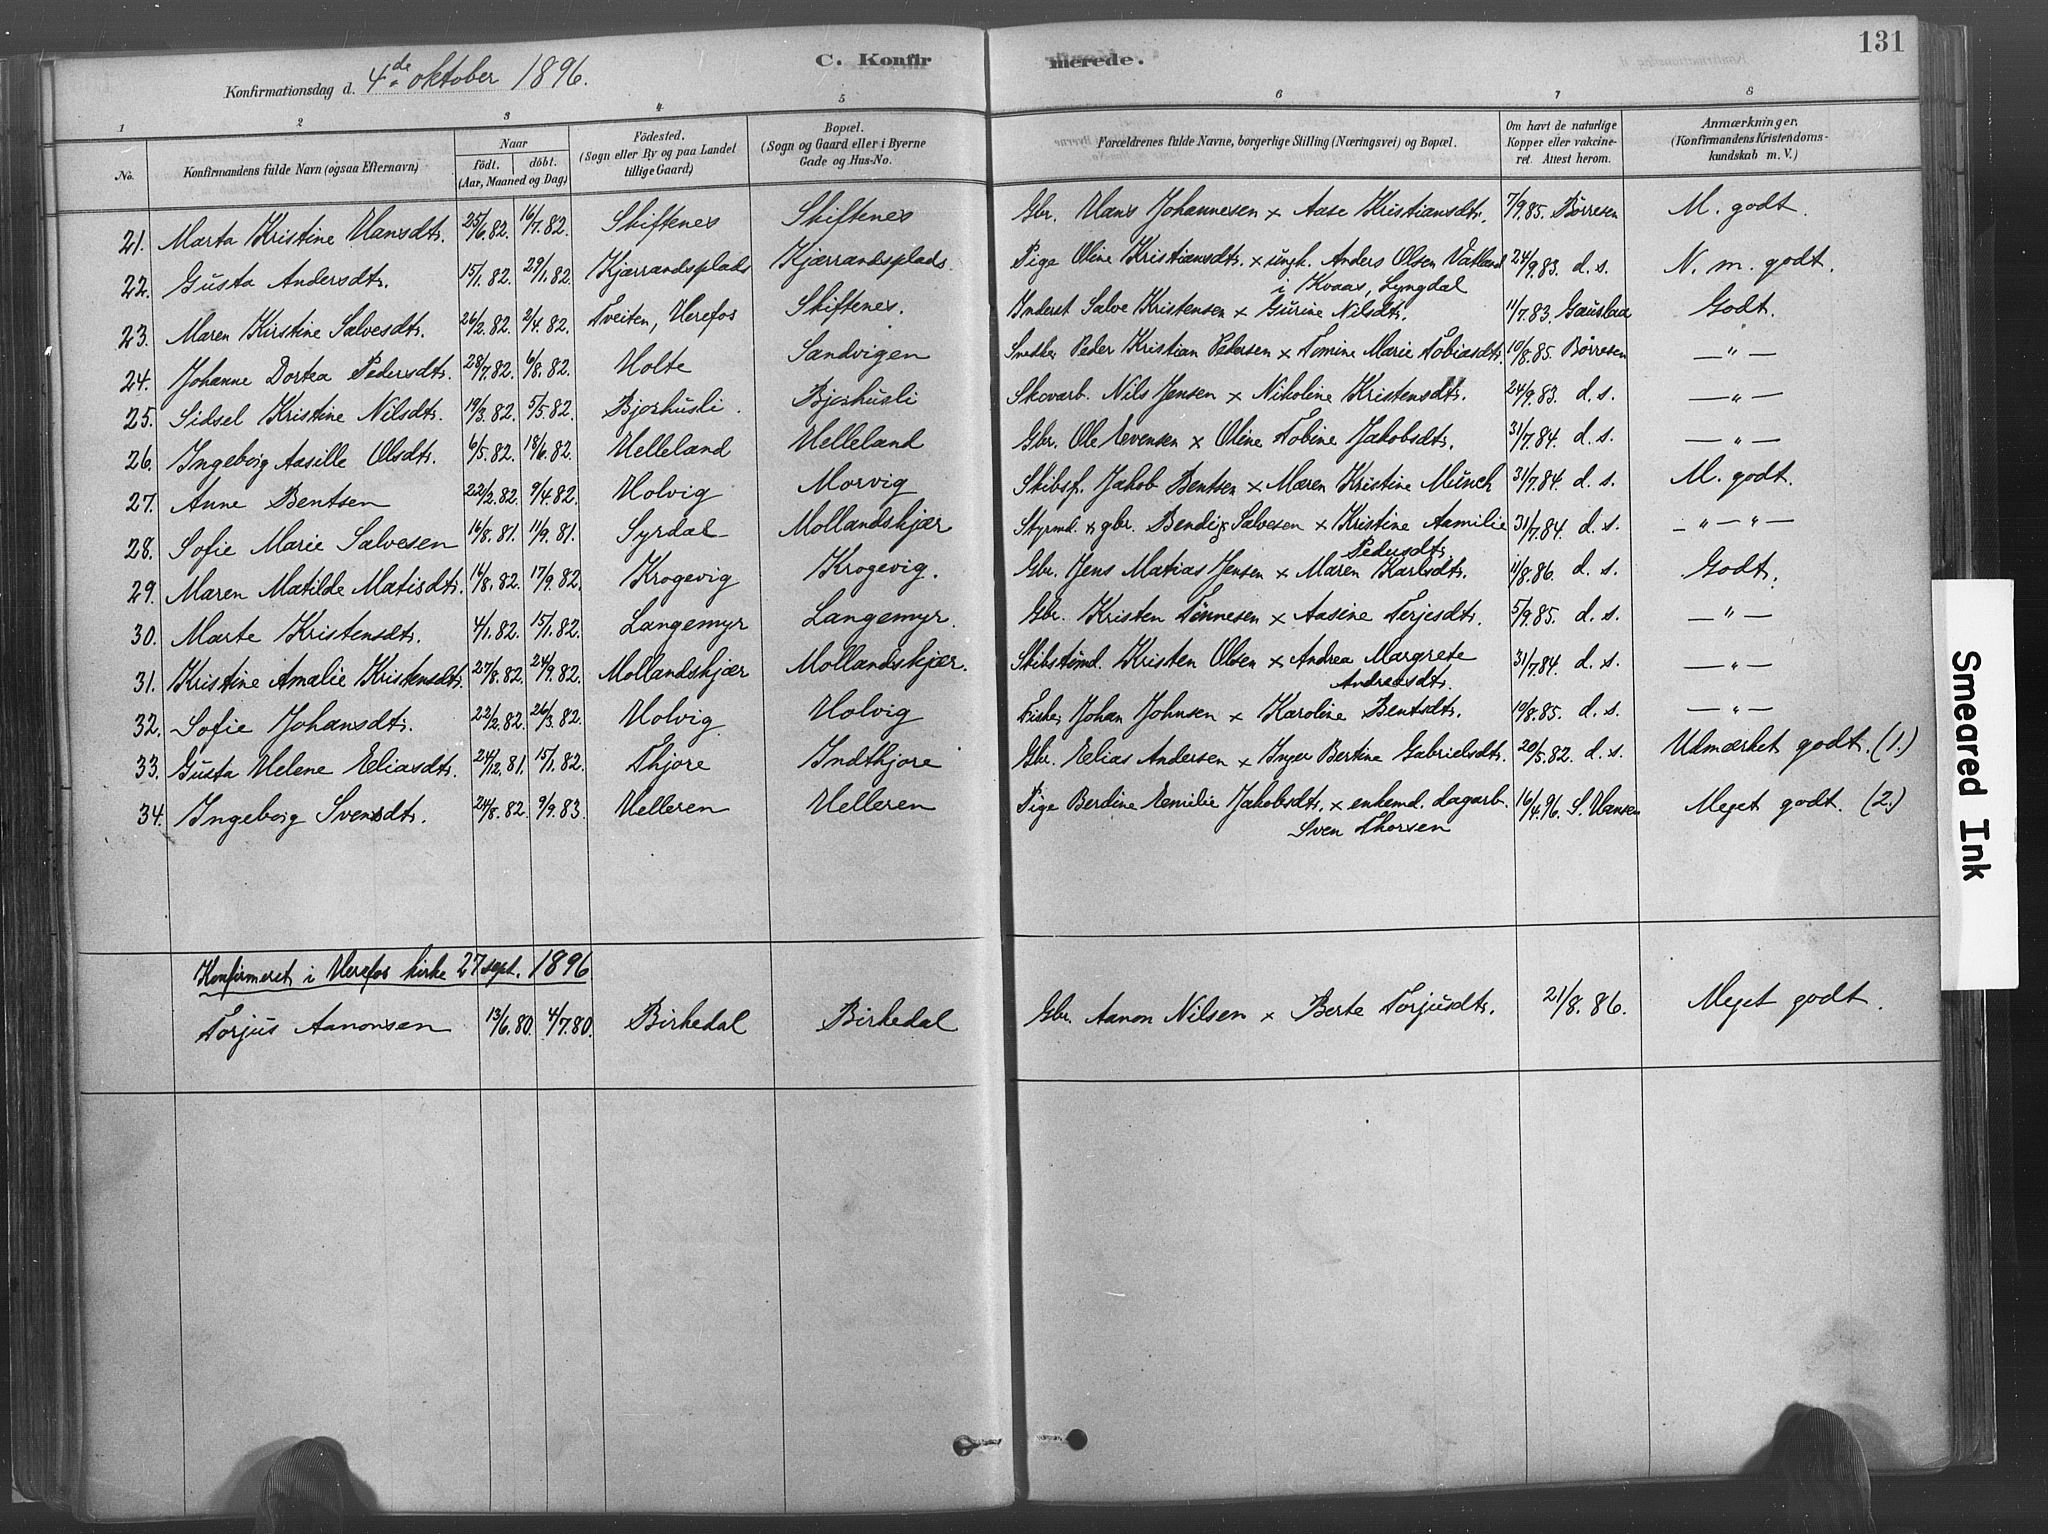 131
Konfirmationsdag d. 4de oktober 1896.
C. Konfirmerede.
1 2 3 4 5 6 7 8
No.
Konfirmandens fulde Navn (ogsaa Efternavn)
Naar
födt. döbt.
(Aar, Maaned og Dag)
Födested.
(Sogn eller By og paa Landet
tillige Gaard)
Bopæl.
(Sogn og Gaard eller i Byerne
Gade og Hus-No.
Forældrenes fulde Navne, borgerlige Stilling (Næringsvei) og Bopæl.
Om havt de naturlige
Kopper eller vakcine-
ret. Attest herom.
Anmærkninger.
(Konfirmandens Kristendoms-
kundskab m. V.)
21. Marta Kristine Hansdtr. 25/6.82. 16/7.82. Skiftenes Skiftenes Gbr. Hans Johannesen x Aase Kristiansdtr. 7/9.85. Børresen M. godt.
22. Gusta Andersdtr. 15/1.82. 29/1.82. Kjærrandsplads Kjærrandsplads. Pige Oline Kristiansdtr. x ungk. Anders Olsen Vatland 24/9.83. d. s. N. m. godt.
i Kvaas, Lyngdal
23. Maren Kirstine Salvesdtr. 26/2.82. 2/4.82. Tveiten, Herefos Skiftenes. Inderst Salve Kristensen x Gurine Nilsdtr. 11/7.83. Gauslaa Godt.
24. Johanne Dortea Pedersdtr. 28/7.82. 6/8.82. Holte Sandvigen Snedker Peder Kristian Pedersen x Tomine Marie Tobiasdtr. 10/8.85. Børresen — " —
25. Sidsel Kristine Nilsdtr. 19/3.82. 5/5.82. Bjorhusli. Bjorhusli Skovarb. Nils Jensen x Nikoline Kristensdtr. 24/9.83. d. s. — " —
26. Ingeborg Aasille Olsdtr. 6/5.82. 18/6.82. Helleland Helleland Gbr. Ole Evensen x Oline Tobine Jakobsdtr. 31/7.84. d. s. — " —
27. Anne Bentsen 22/2.82. 9/4.82. Holvig Morvig Skibsf. Jakob Bentsen x Maren Kristine Münch 31/7.84. d. s. M. godt.
28. Sofie Marie Salvesen 16/8.81. 11/9.81. Syrdal Mollandskjær Styrmd. & gbr. Bendig Salvesen x Kristine Aamilie 31/7.84. d. s. — " — " —
Pedersdtr.
29. Maren Matilde Matisdtr. 14/8.82. 17/9.82. Krogevig Krogevig. Gbr. Jens Matias Jensen x Maren Karlsdtr. 11/8.86. d. s. Godt.
30. Marte Kristensdtr. 4/1.82. 15/1.82. Langemyr Langemyr. Gbr. Kristen Tønnesen x Aasine Terjesdtr. 5/9.85. d. s. — " —
31. Kristine Amalie Kristensdtr. 27/8.82. 24/9.82. Mollandskjær Mollandskjær. Skibstømd. Kristen Olsen x Andrea Margrete 31/7.84. d. s. — " —
Andreasdtr.
32. Sofie Johansdtr. 22/2.82. 26/3.82. Holvig Holvig Fisker Johan Johnsen x Karoline Bentsdtr. 19/8.85. d. s. — " —
33. Gusta Helene Eliasdtr. 24/12.81. 15/1.82. Thjore Indthjore Gbr. Elias Andersen x Inger Bertine Gabrielsdtr. 20/5.82. d. s. Udmærket godt. (1.)
34. Ingeborg Svensdtr. 24/8.82. 9/9.83. Helleren Helleren Pige Berdine Emilie Jakobsdtr. x enkemd. dagarb. 16/4.96. S. Hansen Meget godt. (2.)
Sven Thorsen
Konfirmeret i Herefos kirke 27 sept. 1896
Torjus Aanonsen 13/6.80. 4/7.80. Birkedal Birkedal Gbr. Aanon Nilsen x Berte Torjusdtr. 21/8.86. Meget godt.
Smeared Ink